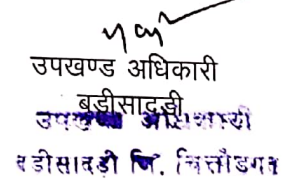 उपखण्ड अधिकारी
बडीसादडी
उपखण्ड अधिकारी
बडीसादडी जि. चित्तौडगढ